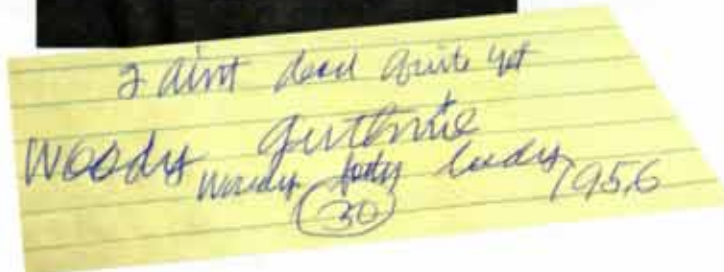 I aint dead quite yet
Woody Guthrie
Woody 1956
30